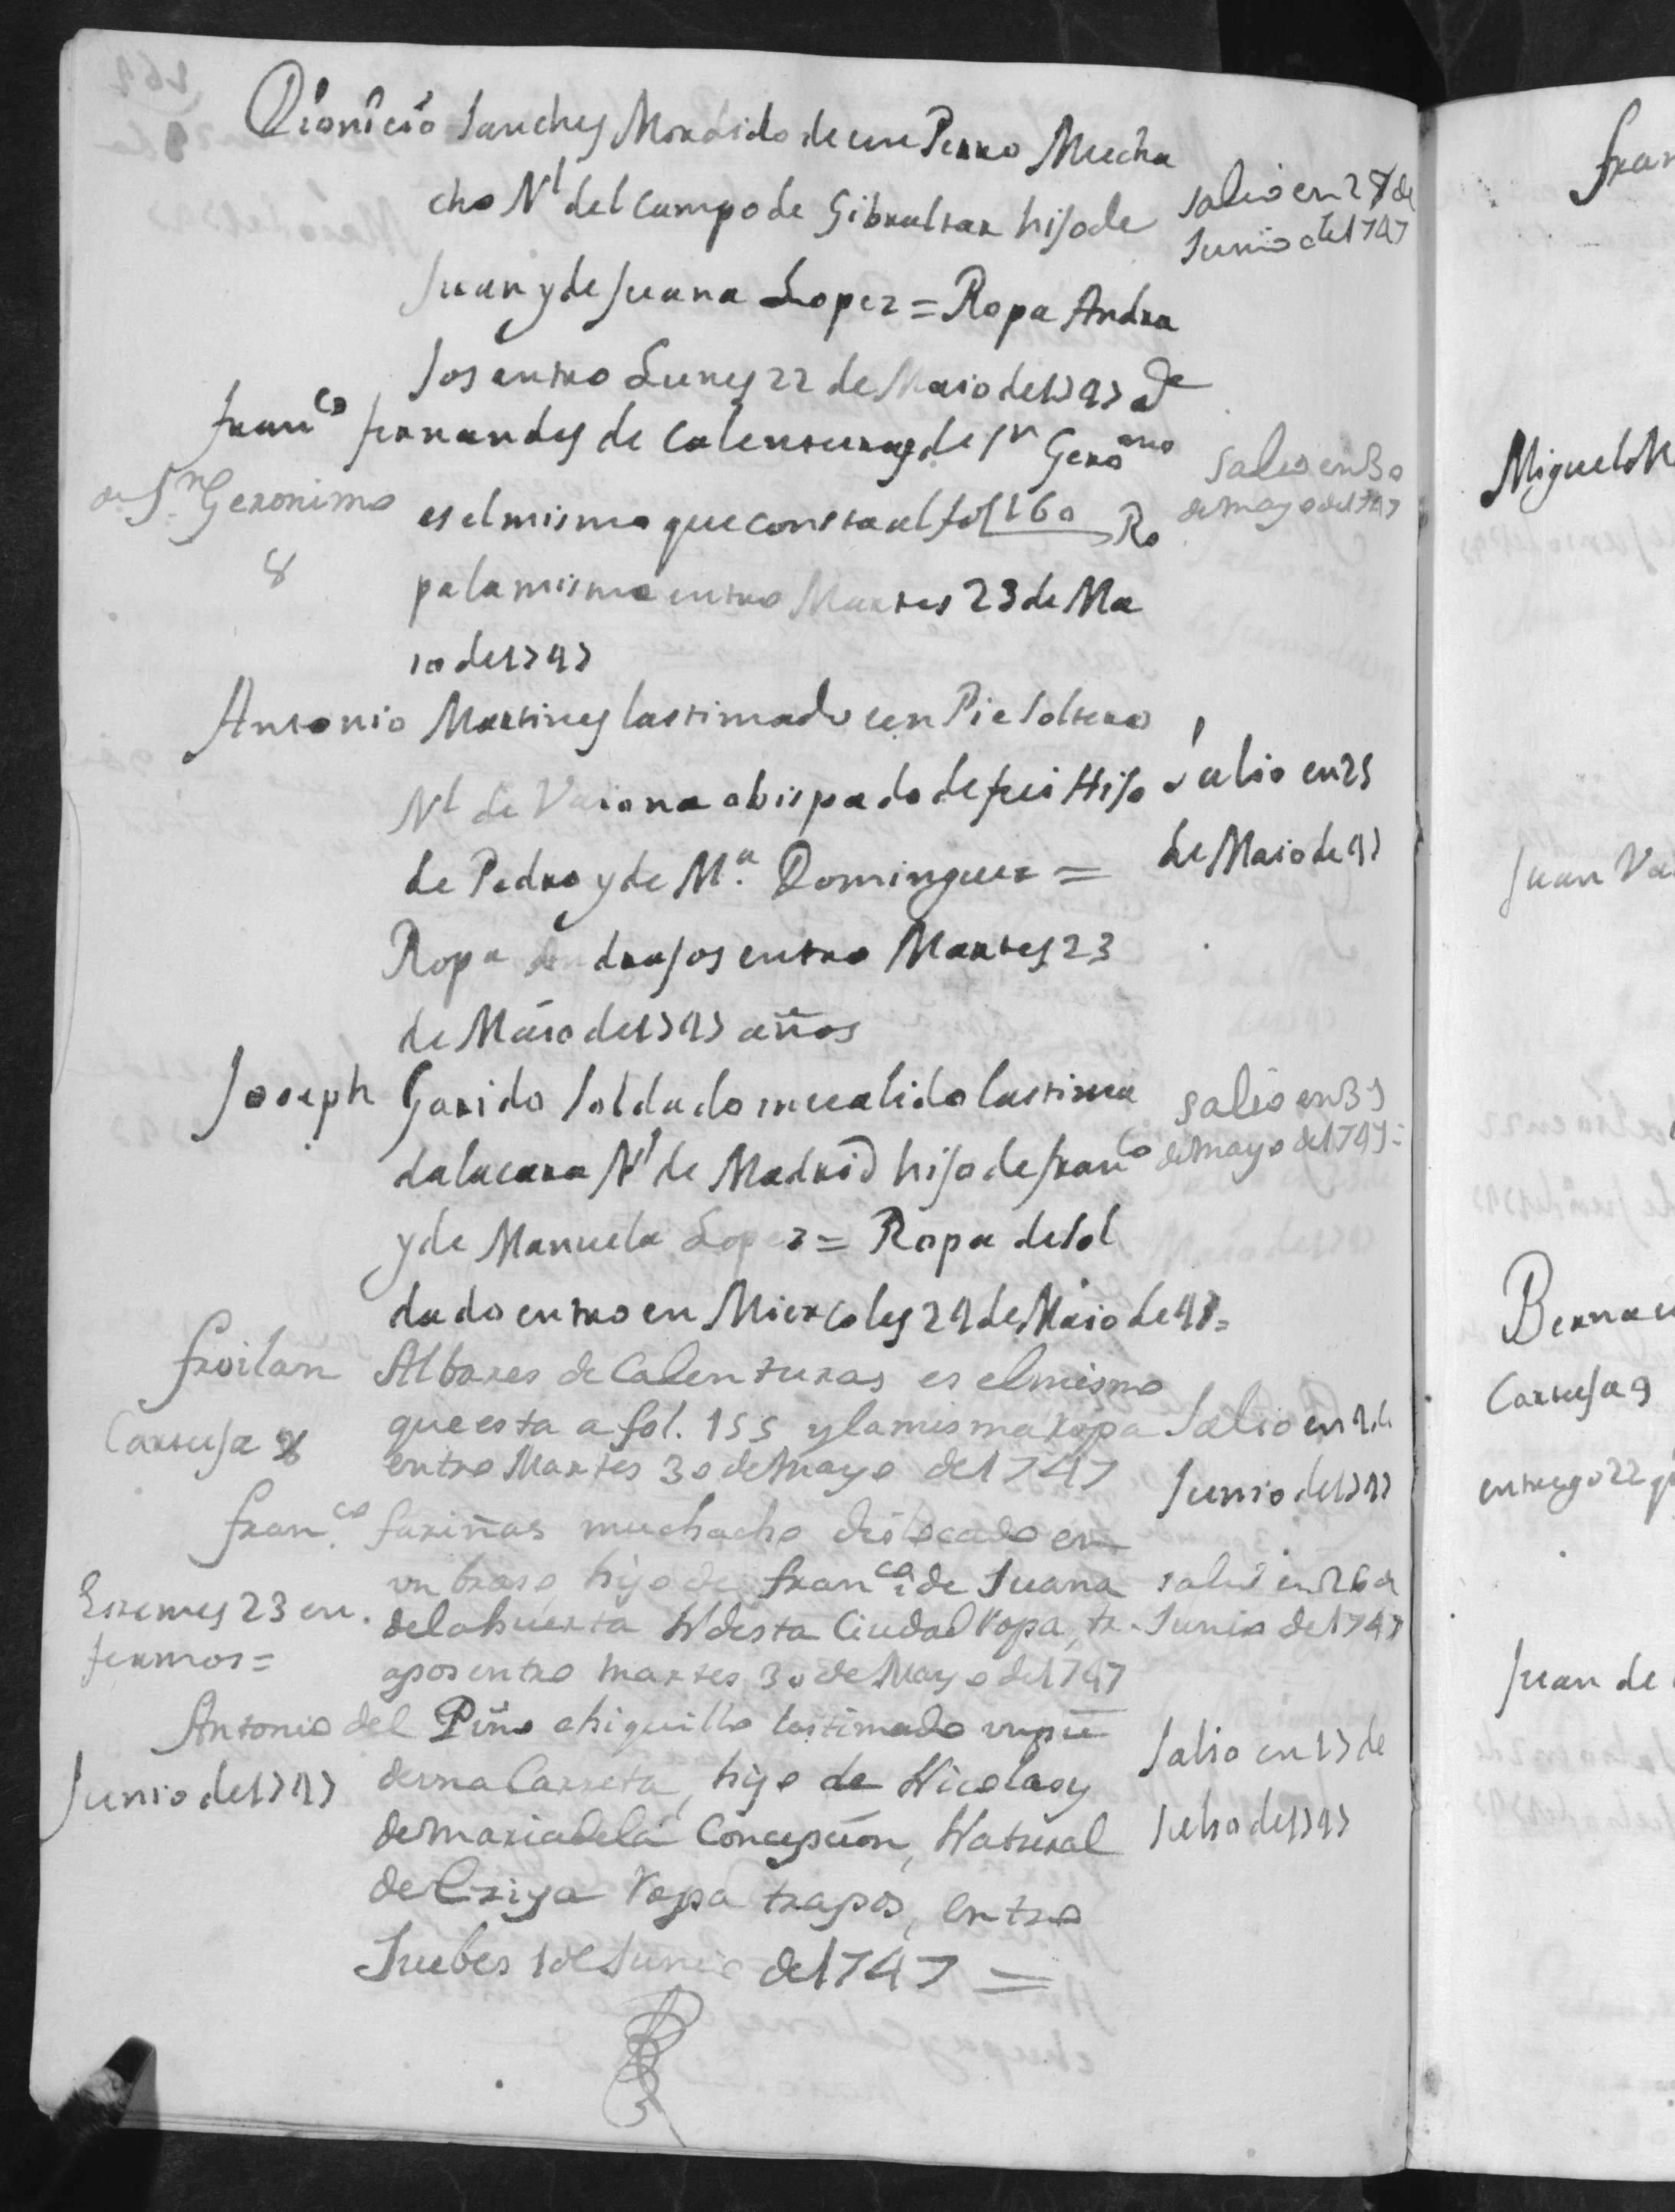 Dionicio Sanches Mordido de un Perro Mucha
cho Nl del Campo de Gibraltar hijo de
Juan y de Juana Lopez = Ropa Andra
Jos entro Lunes 22 de Maio de 1747 a.
salio en 28 de
Junio de 1747
Franco fernandes de Calenturas de Sn Geromo
de Sn Geronimo
8
es el mismo que consta al fol 160 Ro
pa la misma entro Martes 23 de Ma
io de 1747
Salio en 30
de mayo de 1747
Antonio Martines lastimado en Pie Soltero
Nl de Vaiona obispado de tui Hijo
de Pedro y de Ma. Dominguez =
Ropa Andrajos entro Martes 23
de Maio de 1747 años
Salio en 25
de Maio de 47
Joseph Garido Soldado invalido lastima
da la cara Nl de Madrid hijo de franco
y de Manuela Lopez = Ropa de Sol
dado entro en Miercoles 24 de Maio de 47 =
Salio en 31
de mayo de 1747 =
froilan Albares de Calenturas es el mismo
que esta a fol. 155 y la misma ropa
entro Martes 30 de Mayo de 1747
Cartuja 8
Salio en 2 de
Junio de 1747
Fran.co fariñas muchacho dislocado en
un braso, hijo de Franco i de Juana
de la huerta N desta Ciudad Ropa, tr.
apos entro martes 30 de Mayo de 1747
Enemes 23 en.
fermos =
salio en 26 de
Junio de 1747
Antonio del Pino chiquillo lastimado un pie
de una Carreta, hijo de Nicolas y
de maria de la Concepcion, Natural
de Ezija Ropa trapos, entro
Juebes 1 de Junio de 1747 =
Junio de 1747
Salio en 17 de
Julio de 1747
Fran
Miguel
Juan Va
Berna
Cartuja 9
entrego 22
Juan de